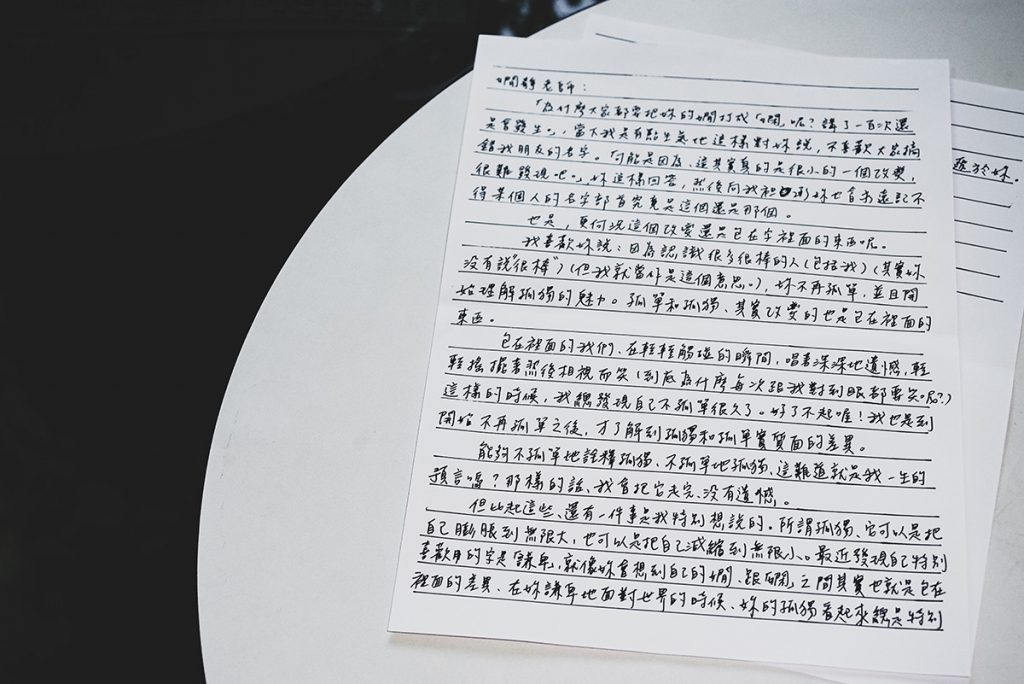 嫻靜老師：
「為什麼大家都要把妳的嫻打成「嫺」呢？講了一百次還
是會發生。」當下我是有點生氣地這樣對妳說，不喜歡大家搞
錯我朋友的名字。「可能是因為、這其實真的是很小的一個改變，
很難發現吧。」妳這樣回答，然後向我坦承妳也會永遠記不
得某個人的名字部首究竟是這個還是那個。
也是，更何況這個改變還是包在字裡面的東西呢。
我喜歡妳說：因為認識很多很棒的人（包括我）（其實妳
沒有說“很棒”）（但我就當作是這個意思。），妳不再孤單，並且開
始理解孤獨的魅力。孤單和孤獨、其實改變的也是包在裡面的
東西。
包在裡面的我們、在輕輕觸碰的瞬間，唱著深深地遺憾，輕
輕搖擺著然後相視而笑（到底為什麼每次跟我對到眼都要笑呢？）
這樣的時候，我總發現自己不孤單很久了。好了不起喔！我也是到
開始不再孤單之後，才了解到孤獨和孤單實質面的差異。
能夠不孤單地詮釋孤獨、不孤單地孤獨、這難道就是我一生的
預言嗎？那樣的話、我會把它走完、沒有遺憾。
但比起這些、還有一件事是我特別想說的。所謂孤獨、它可以是把
自己膨脹到無限大，也可以是把自己減縮到無限小。最近發現自己特別
喜歡用的字是「謙卑」，就像妳會想到自己的嫻、跟「嫺」之間其實也就是包在
裡面的差異、在妳謙卑地面對世界的時候、妳的孤獨看起來總是特別
於妳．